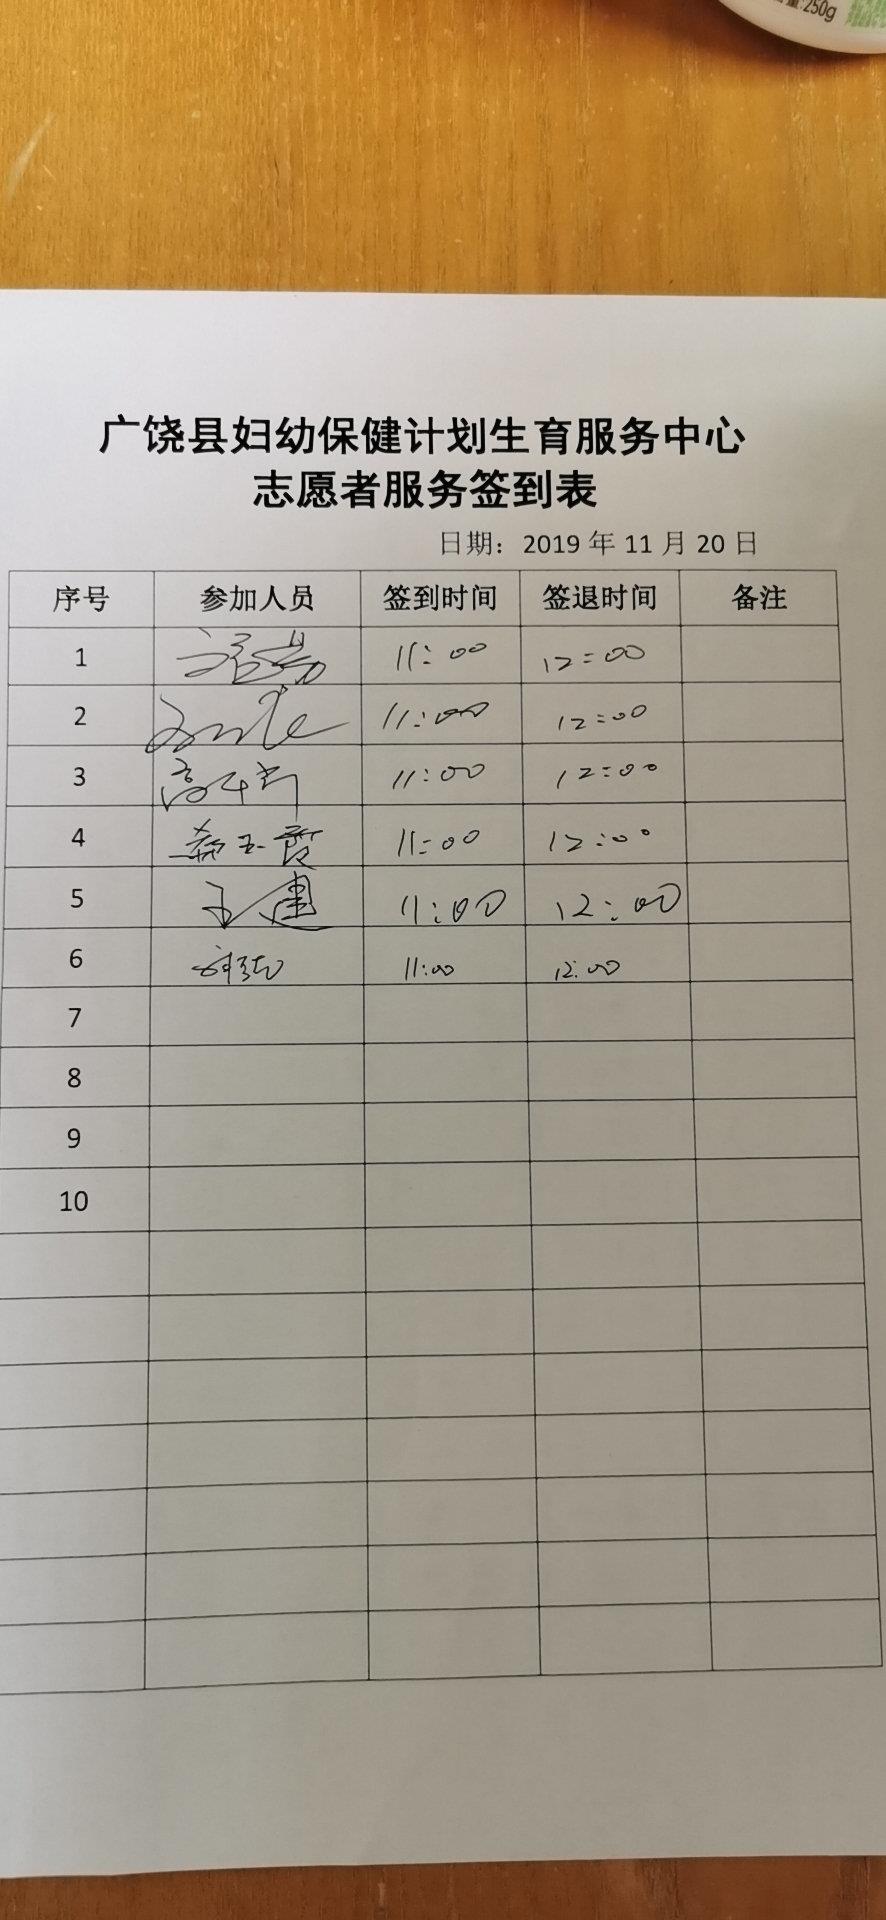 250g
广饶县妇幼保健计划生育服务中心
志愿者服务签到表
日期：2019 年 11 月 20 日
序号 参加人员 签到时间 签退时间 备注
1 11:00 12:00
2 11:00 12:00
3 11:00 12:00
4 玉霞 11:00 12:00
5 王建 11:00 12:00
6 11:00 12:00
7
8
9
10